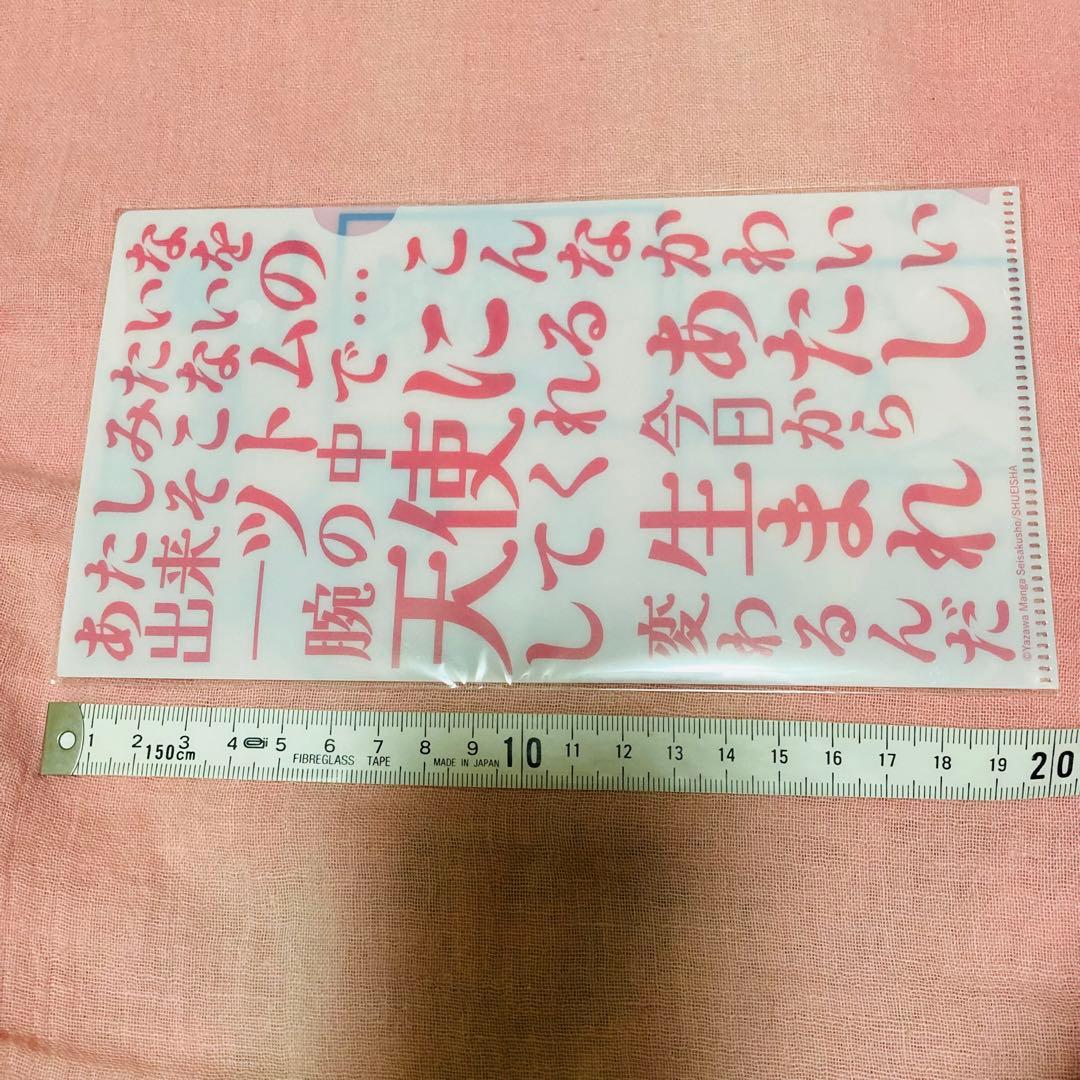 あたしみたいな
出来そこないを
―ツトムの
腕の中で…
こんなかわいい
天使に
してくれる
今日から
あたし
生まれ
変わるんだ
©Yazawa Manga Seisakusho/SHUEISHA
1 2 3 4 5 6 7 8 9 10 11 12 13 14 15 16 17 18 19 20
150cm FIBREGLASS TAPE MADE IN JAPAN